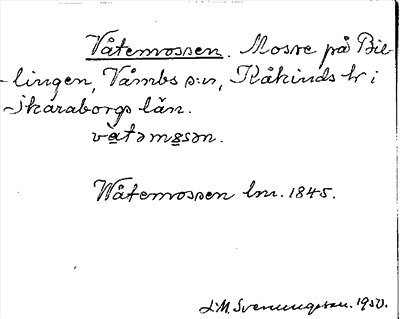 Våtemossen. Mosse på Bil-
-lingen, Våmbs s:n, Kåkinds hr i
Skaraborgs län.
våtəmosən.
Wåtemossen lm. 1845.
L.M. Svenungsson. 1950.